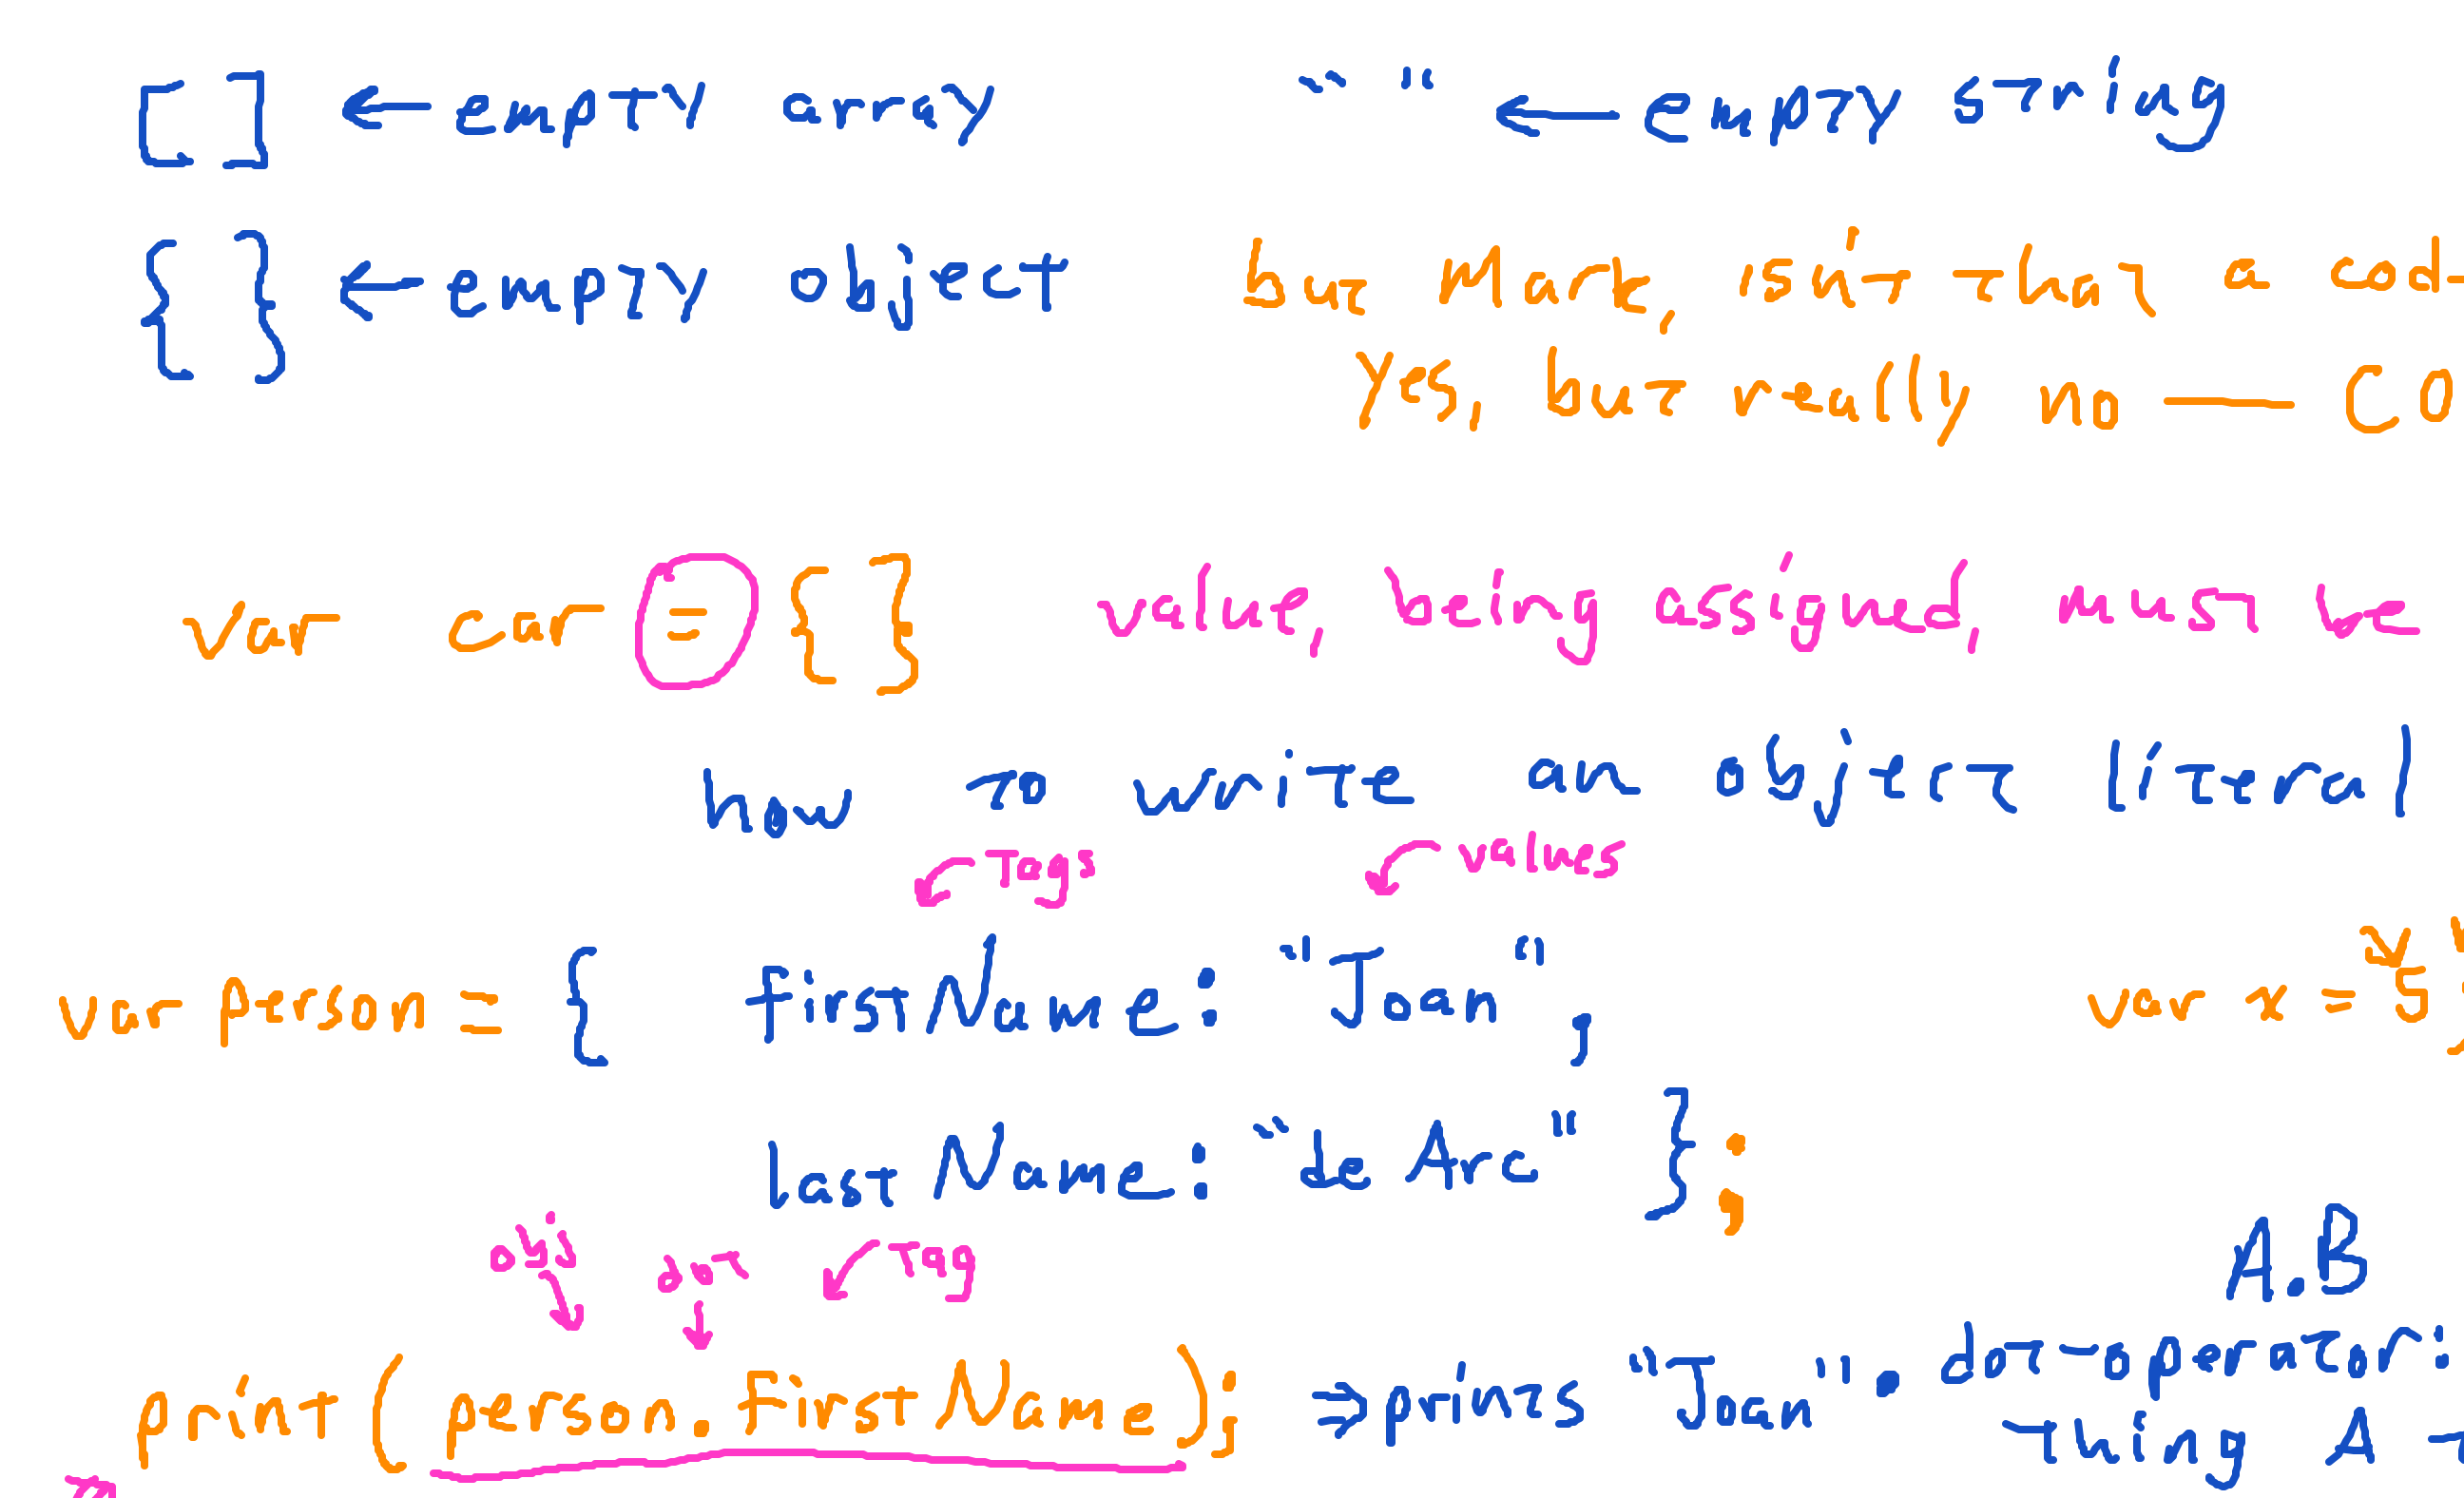 [ ] ← empty array “ " ← empty string
{ } ← empty object but Mark, isn't that a cod
Yes, but really no — co
var car = { } value, being assigned, must be
how to write an object literal
← Tags ← values
var person = { firstName: “Joan", var x = {
lastName: “de Arc" };
obj dot Tag A.B
print (person.firstName); ⇒ prints “Joan". dot operator:
thing A